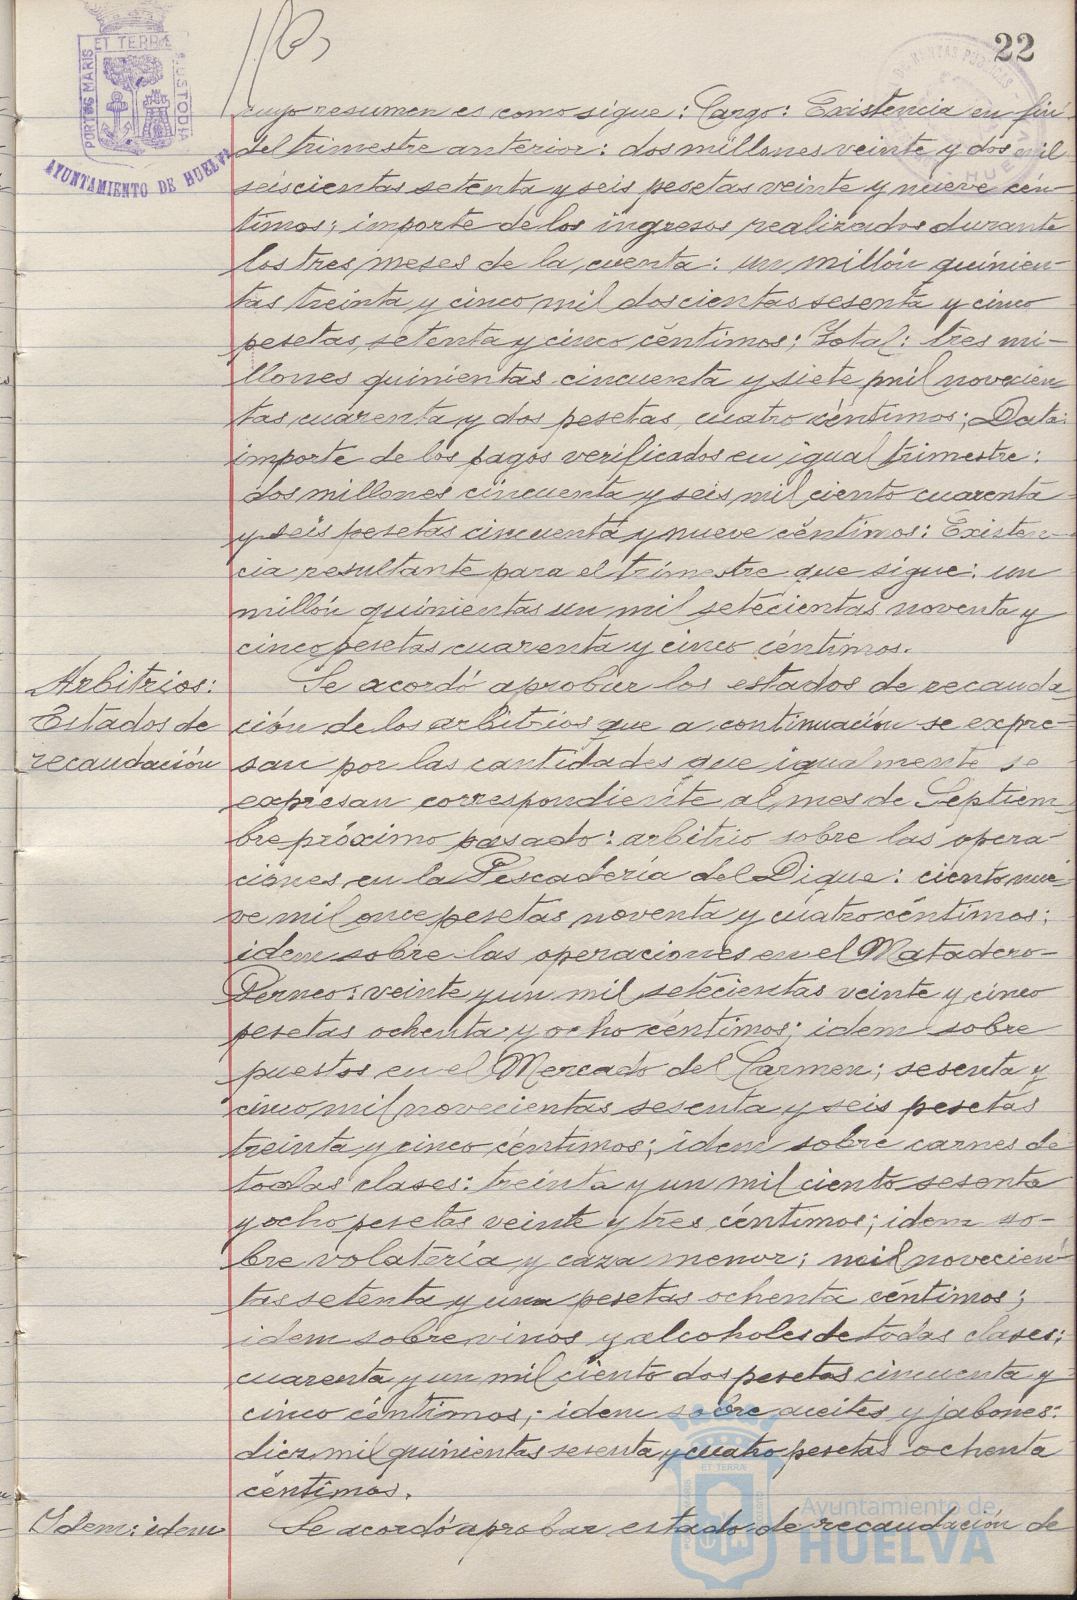 22
PORTUS MARIS ET TERRÆ CUSTODIA
AYUNTAMIENTO DE HUELVA
cuyo resumen es como sigue: Cargo: Existencia en fin
del trimestre anterior: dos millones veinte y dos mil
seiscientas setenta y seis pesetas veinte y nueve cén-
timos; importe de los ingresos realizados durante
los tres meses de la cuenta: un millón quinien-
tas treinta y cinco mil doscientas sesenta y cinco
pesetas, setenta y cinco céntimos; Total: tres mi-
llones quinientas cincuenta y siete mil novecien-
tas cuarenta y dos pesetas, cuatro céntimos; Data:
importe de los pagos verificados en igual trimestre:
dos millones cincuenta y seis mil ciento cuarenta
y seis pesetas cincuenta y nueve céntimos: Existen-
cia resultante para el trimestre que sigue: un
millón quinientas un mil setecientas noventa y
cinco pesetas cuarenta y cinco céntimos.
Arbitrios:
Estados de
recaudación
Se acordó aprobar los estados de recauda-
ción de los arbitrios que a continuación se expre-
san por las cantidades que igualmente se
expresan correspondiente al mes de Septiem-
bre próximo pasado: arbitrio sobre las opera-
ciones en la Pescadería del Dique: ciento nue-
ve mil once pesetas noventa y cuatro céntimos;
idem sobre las operaciones en el Matadero-
Perneo: veinte y un mil setecientas veinte y cinco
pesetas ochenta y ocho céntimos; idem sobre
puestos en el Mercado del Carmen; sesenta y
cinco mil novecientas sesenta y seis pesetas
treinta y cinco céntimos; idem sobre carnes de
todas clases: treinta y un mil ciento sesenta
y ocho pesetas veinte y tres céntimos; idem so-
bre volatería y caza menor; mil novecien-
tas setenta y una pesetas ochenta céntimos;
idem sobre vinos y alcoholes de todas clases;
cuarenta y un mil ciento dos pesetas cincuenta y
cinco céntimos; idem sobre aceites y jabones:
diez mil quinientas sesenta y cuatro pesetas ochenta
céntimos.
Idem: idem
Se acordó aprobar estado de recaudación de
Ayuntamiento de
HUELVA